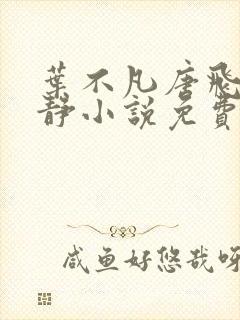 葉不凡唐飛
靜小說免費
咸鱼好悠哉呀